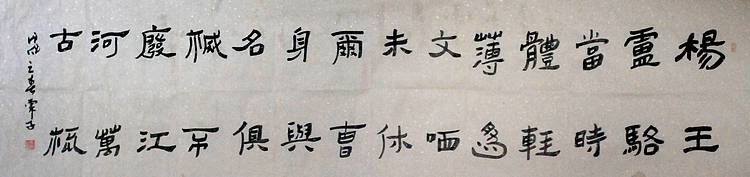 楊王
盧駱
當時
體輕
薄爲
文哂
未休
爾曹
身與
名俱
滅不
廢江
河萬
古流
戊戌之春